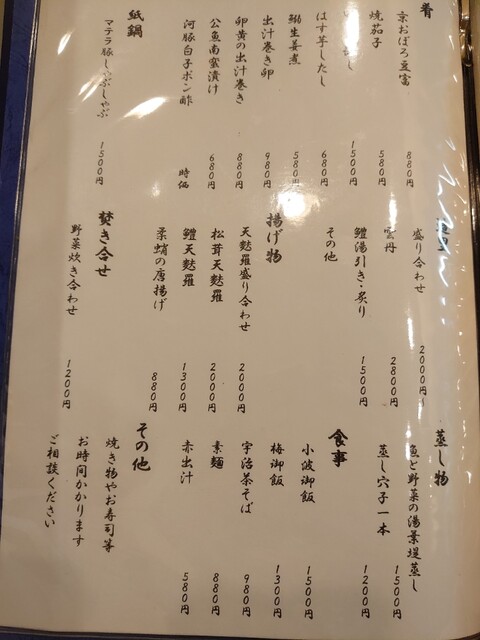 肴
京おぼろ豆富 880円
焼茄子 580円
1500円
はす芋したし 680円
鰯生姜煮 580円
出汁巻き卵 980円
卵黄の出汁巻き 880円
公魚南蛮漬け 680円
河豚白子ポン酢 時価
紙鍋
マテラ豚しゃぶしゃぶ 1500円
盛り合わせ 2000円
雲丹 2800円
鱧湯引き・炙り 1500円
その他
揚げ物
天麩羅盛り合わせ 2000円
松茸天麩羅 2000円
鱧天麩羅 1300円
柔蛸の唐揚げ 880円
焚き合せ
野菜炊き合わせ 1200円
蒸し物
魚と野菜の湯葉堤蒸し 1500円
蒸し穴子一本 1200円
食事
小波御飯 1500円
梅御飯 1300円
宇治茶そば 980円
素麺 880円
赤出汁 580円
その他
焼き物やお寿司等
お時間かかります
ご相談ください